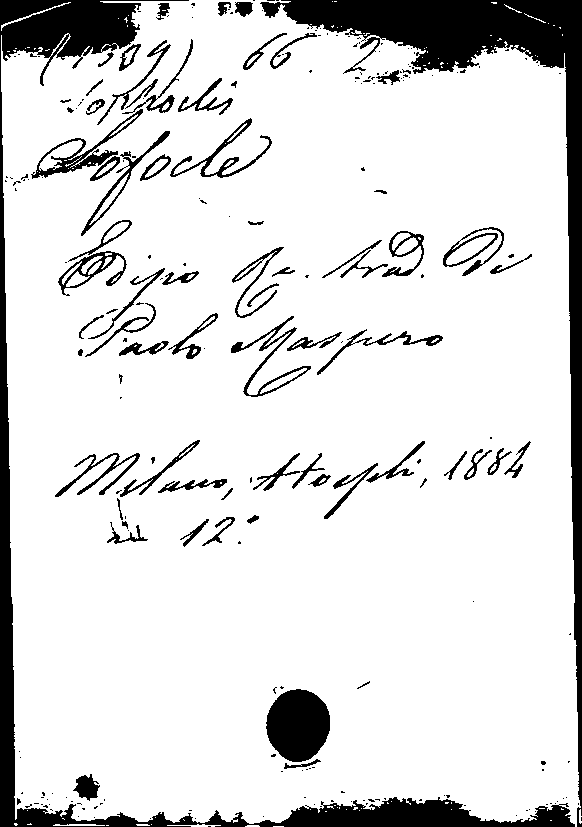 (1309) 66. 2
Sophoclis
Sofocle
Edipo Re. trad. Di
Paolo Maspero
Milano, Hoepli, 1884
in 12.°